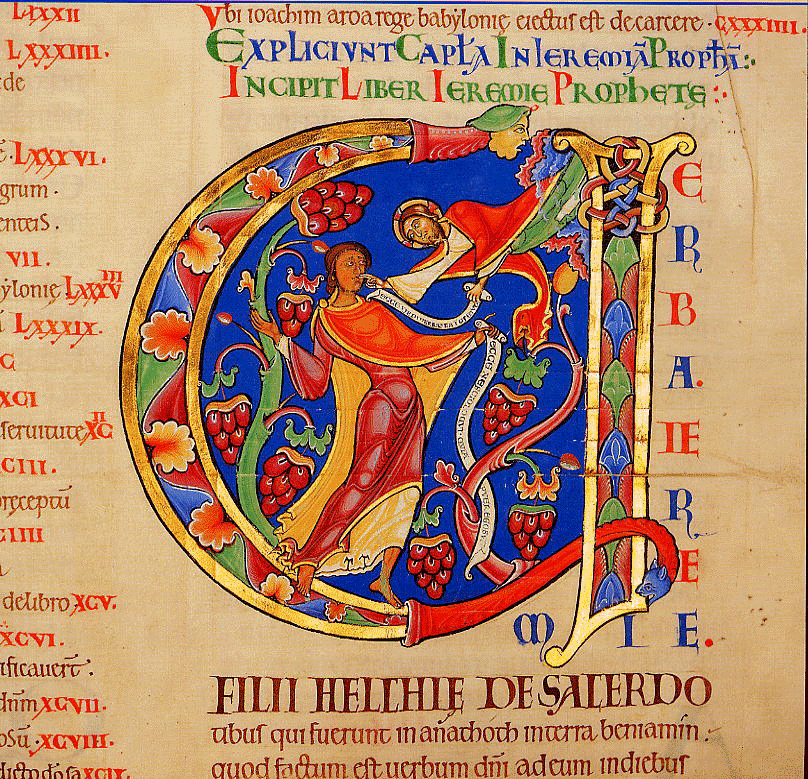 LXXXII
LXXXIIII.
de
LXXXVI.
grum ·
VII.
ylonię LXXXVIII
LXXXIX.
C
XCI
seruitute XCII
CIII.
pręceptū
CIIII
de libro XCV.
XCVI.
ificauer̄t.
dn̄m XCVII.
osū. XCVIII.
XCIX.
Vbi ioachim a rege babylonię eiectus est de carcere · CXXXIIII.
EXPLICIVNT CAPŁA IN IEREMIĀ PROPħĀ:.
INCIPIT LIBER IEREMIE PROPHETE:.
U
E
R
B
A.
IE
R
E
M I E.
FILII HELCHIE DE SACERDO
tibus qui fuerunt in anathoth in terra beniamin .
quod factum est uerbum dn̄i ad eum in diebus